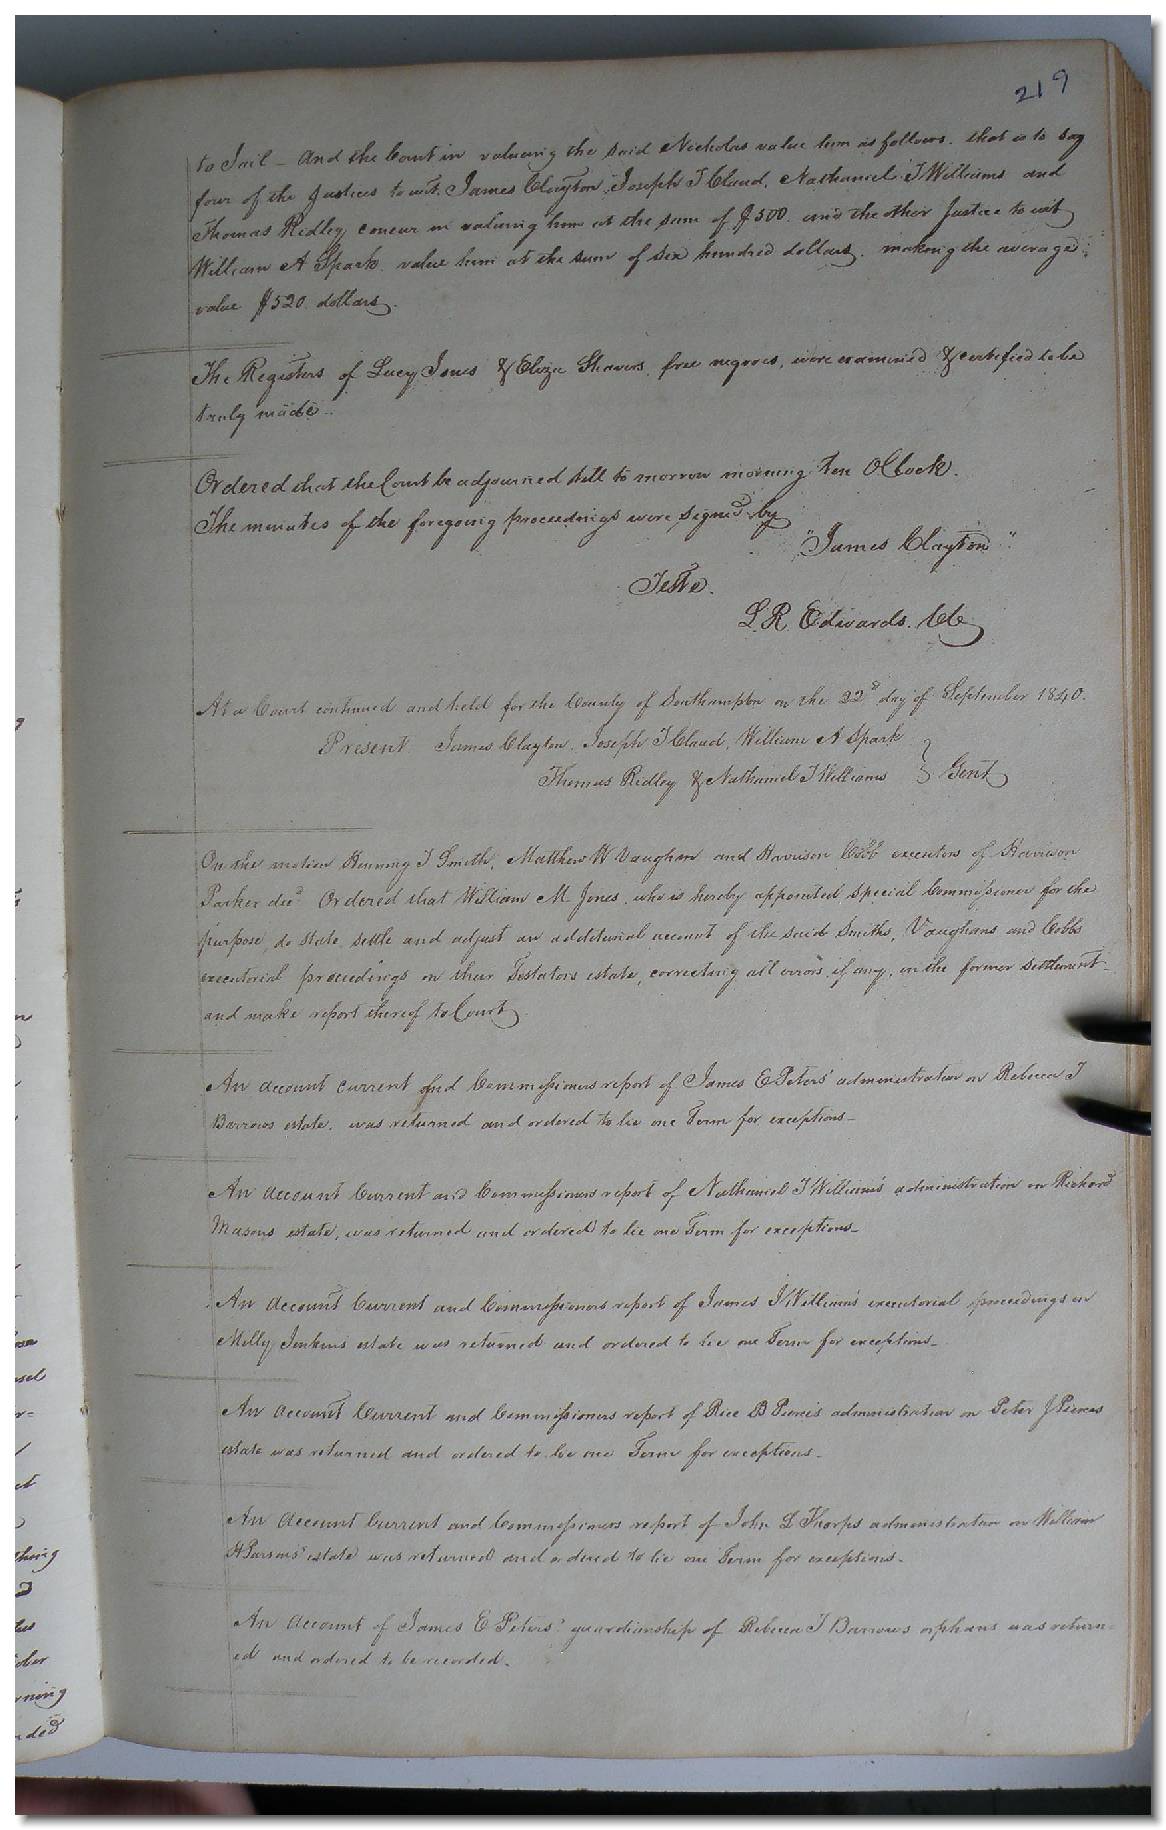 219
to Jail - And the Court in valuing the said Nicholas value him as follows. that is to say
four of the Justices to wit, James Clayton, Joseph T Claud, Nathaniel T Williams and
Thomas Ridley concur in valuing him at the sum of $500. and the other Justice to wit
William A Spark value him at the sum of six hundred dollars. making the average
value $520 dollars.
The Registers of Lucy Jones & Eliza Shavers, free negroes, were examined & certified to be
truly made.
Ordered that the Court be adjourned till to morrow morning ten OClock.
The minutes of the foregoing proceedings were signed by
"James Clayton"
Teste.
L. R. Edwards. Clc
At a Court continued and held for the County of Southampton on the 22d day of September 1840.
Present James Clayton, Joseph T Claud, William A Spark
Thomas Ridley & Nathaniel T Williams } Gent
On the motion Henning T Smith, Matthew W Vaughan and Harrison Cobb executors of Harrison
Parker decd Ordered that William M Jones, who is hereby appointed special Commissioner for the
purpose, do state, settle and adjust an additional account of the said Smiths, Vaughans and Cobbs
executorial proceedings on their Testators estate, correcting all errors, if any, in the former settlement
and make report thereof to Court
An account current and Commissioners report of James E Peters' administration on Rebecca T
Barrows estate. was returned and ordered to lie one Term for exceptions-
An Account Current and Commissioners report of Nathaniel T William's administration on Richard
Masons estate, was returned and ordered to lie one Term for exceptions-
An Account Current and Commissioners report of James J William's executorial proceedings on
Milly Jenkins estate was returned and ordered to lie one Term for exceptions-
An Account Current and Commissioners report of Rice B Pierce's administration on Peter J Pierces
estate was returned and ordered to lie one Term for exceptions-
An Account Current and Commissioners report of John L Thorps administration on William
H Parsons' estate was returned and ordered to lie one Term for exceptions-
An Account of James E Peters' guardianship of Rebecca T Barrows orphans was return=
ed and ordered to be recorded-